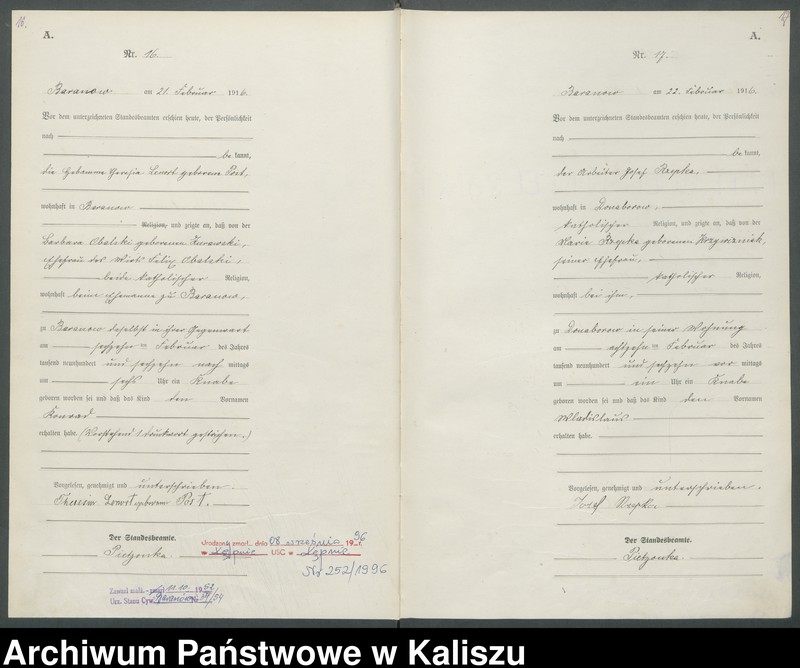 16.
A.
Nr. 16.
Baranow am 21. Februar 1916.
Vor dem unterzeichneten Standesbeamten erschien heute, der Persönlichkeit
nach
be kannt,
die Hebamme Theresia Lewort geborene Post,
wohnhaft in Baranow
Religion, und zeigte an, daß von der
Barbara Obalski geborenen Kurawski,
Ehefrau des Wirts Felix Obalski,
beide katholischer Religion,
wohnhaft beim Ehemanne zu Baranow,
zu Baranow daselbst in ihrer Gegenwart
am sechzehn ten Februar des Jahres
tausend neunhundert und sechzehn nach mittags
um sechs Uhr ein Knabe
geboren worden sei und daß das Kind den Vornamen
Konrad
erhalten habe. (Vorstehend 1 Druckwort gestrichen.)
Vorgelesen, genehmigt und unterschrieben.
Theresia geborene Post.
Der Standesbeamte.
Pietzonka
Urodzony zmarł dnia 08 września 1996
w Kępnie USC w Kępnie
Nr 252/1996
Zawarł małż. 11.10. 1952
Urz. Stanu Cyw. Baranów
17
A.
Nr. 17.
Baranow am 22. Februar 1916.
Vor dem unterzeichneten Standesbeamten erschien heute, der Persönlichkeit
nach
be kannt,
der Arbeiter Josef Rzepka,
wohnhaft in Donaborow,
katholischer Religion, und zeigte an, daß von der
Marie Rzepka geborenen Krzywaznick,
seiner Ehefrau,
katholischer Religion,
wohnhaft bei ihm,
zu Donaborow in seiner Wohnung
am achtzehn ten Februar des Jahres
tausend neunhundert und sechzehn vor mittags
um ein Uhr ein Knabe
geboren worden sei und daß das Kind den Vornamen
Wladislaus
erhalten habe.
Vorgelesen, genehmigt und unterschrieben.
Josef Rzepka
Der Standesbeamte.
Pietzonka
Archiwum Państwowe w Kaliszu